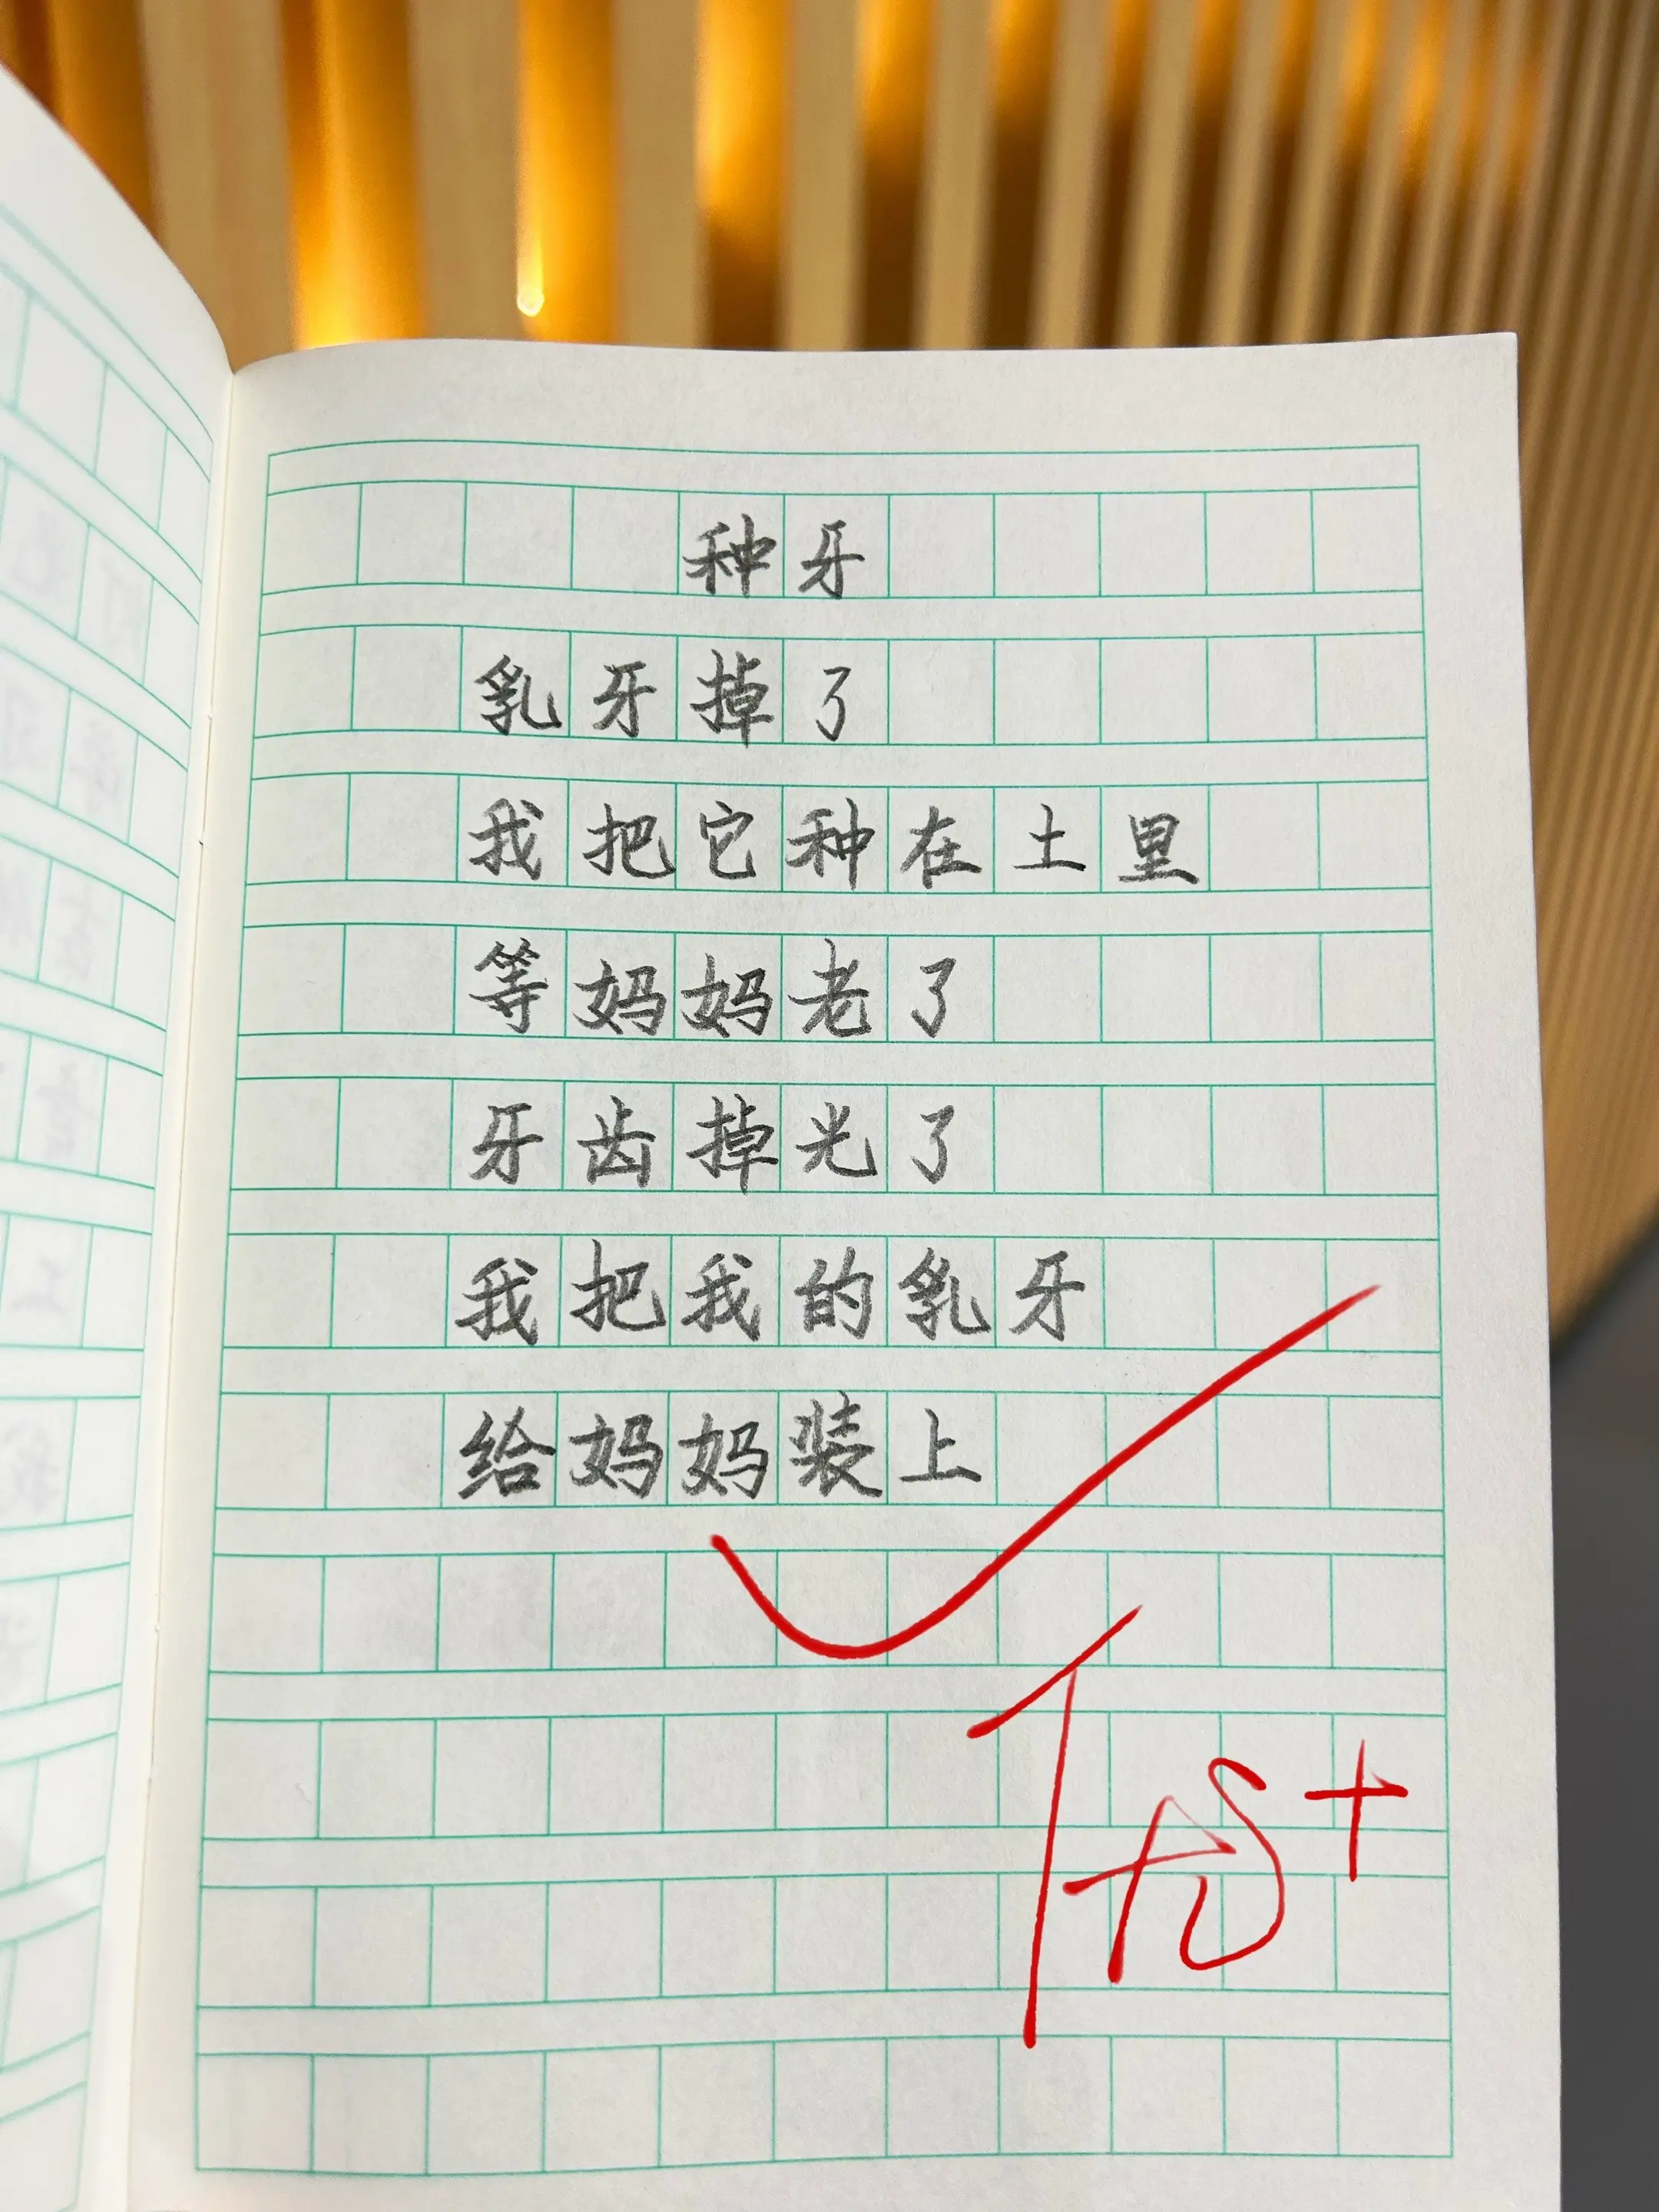 种牙
乳牙掉了
我把它种在土里
等妈妈老了
牙齿掉光了
我把我的乳牙
给妈妈装上
优+